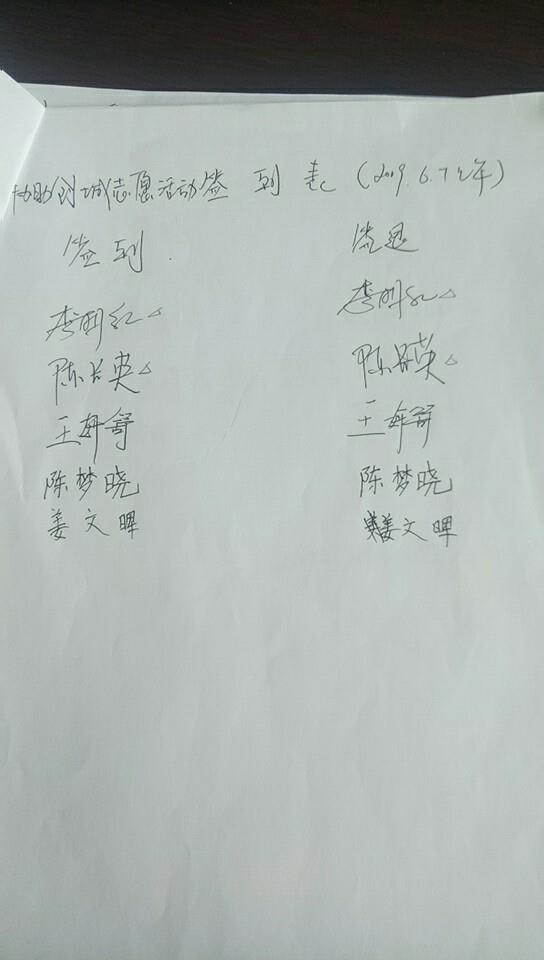 协助创城志愿活动签到表(2019.6.7上午)
签到 签退
李明红△ 李明红△
陈长英△ 陈长英△
王妍舒 王妍舒
陈梦晓 陈梦晓
姜文晖 姜文晖